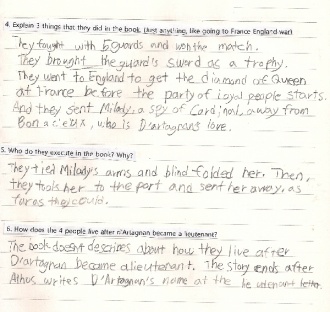 4. Explain 3 things that they did in the book. (Just anything, like going to France England war)
They fought with 6 guards and won the match.
They brought the guard's sword as a trophy.
They went to England to get the diamond of Queen
of France before the party of loyal people starts.
And they sent Milady, a spy of Cardinal, away from
Bonacieux, who is D'artagnans love.
5. Who do they execute in the book? Why?
They tied Milady's arms and blind folded her. Then,
they took her to the port and sent her away, as
far as they could.
6. How does the 4 people live after d'Artagnan became a lieutenant?
The book doesnt describes about how they live after
D'artagnan became a lieutenant. The story ends after
Athos writes D'Artagnan's name at the lieutenant letter.